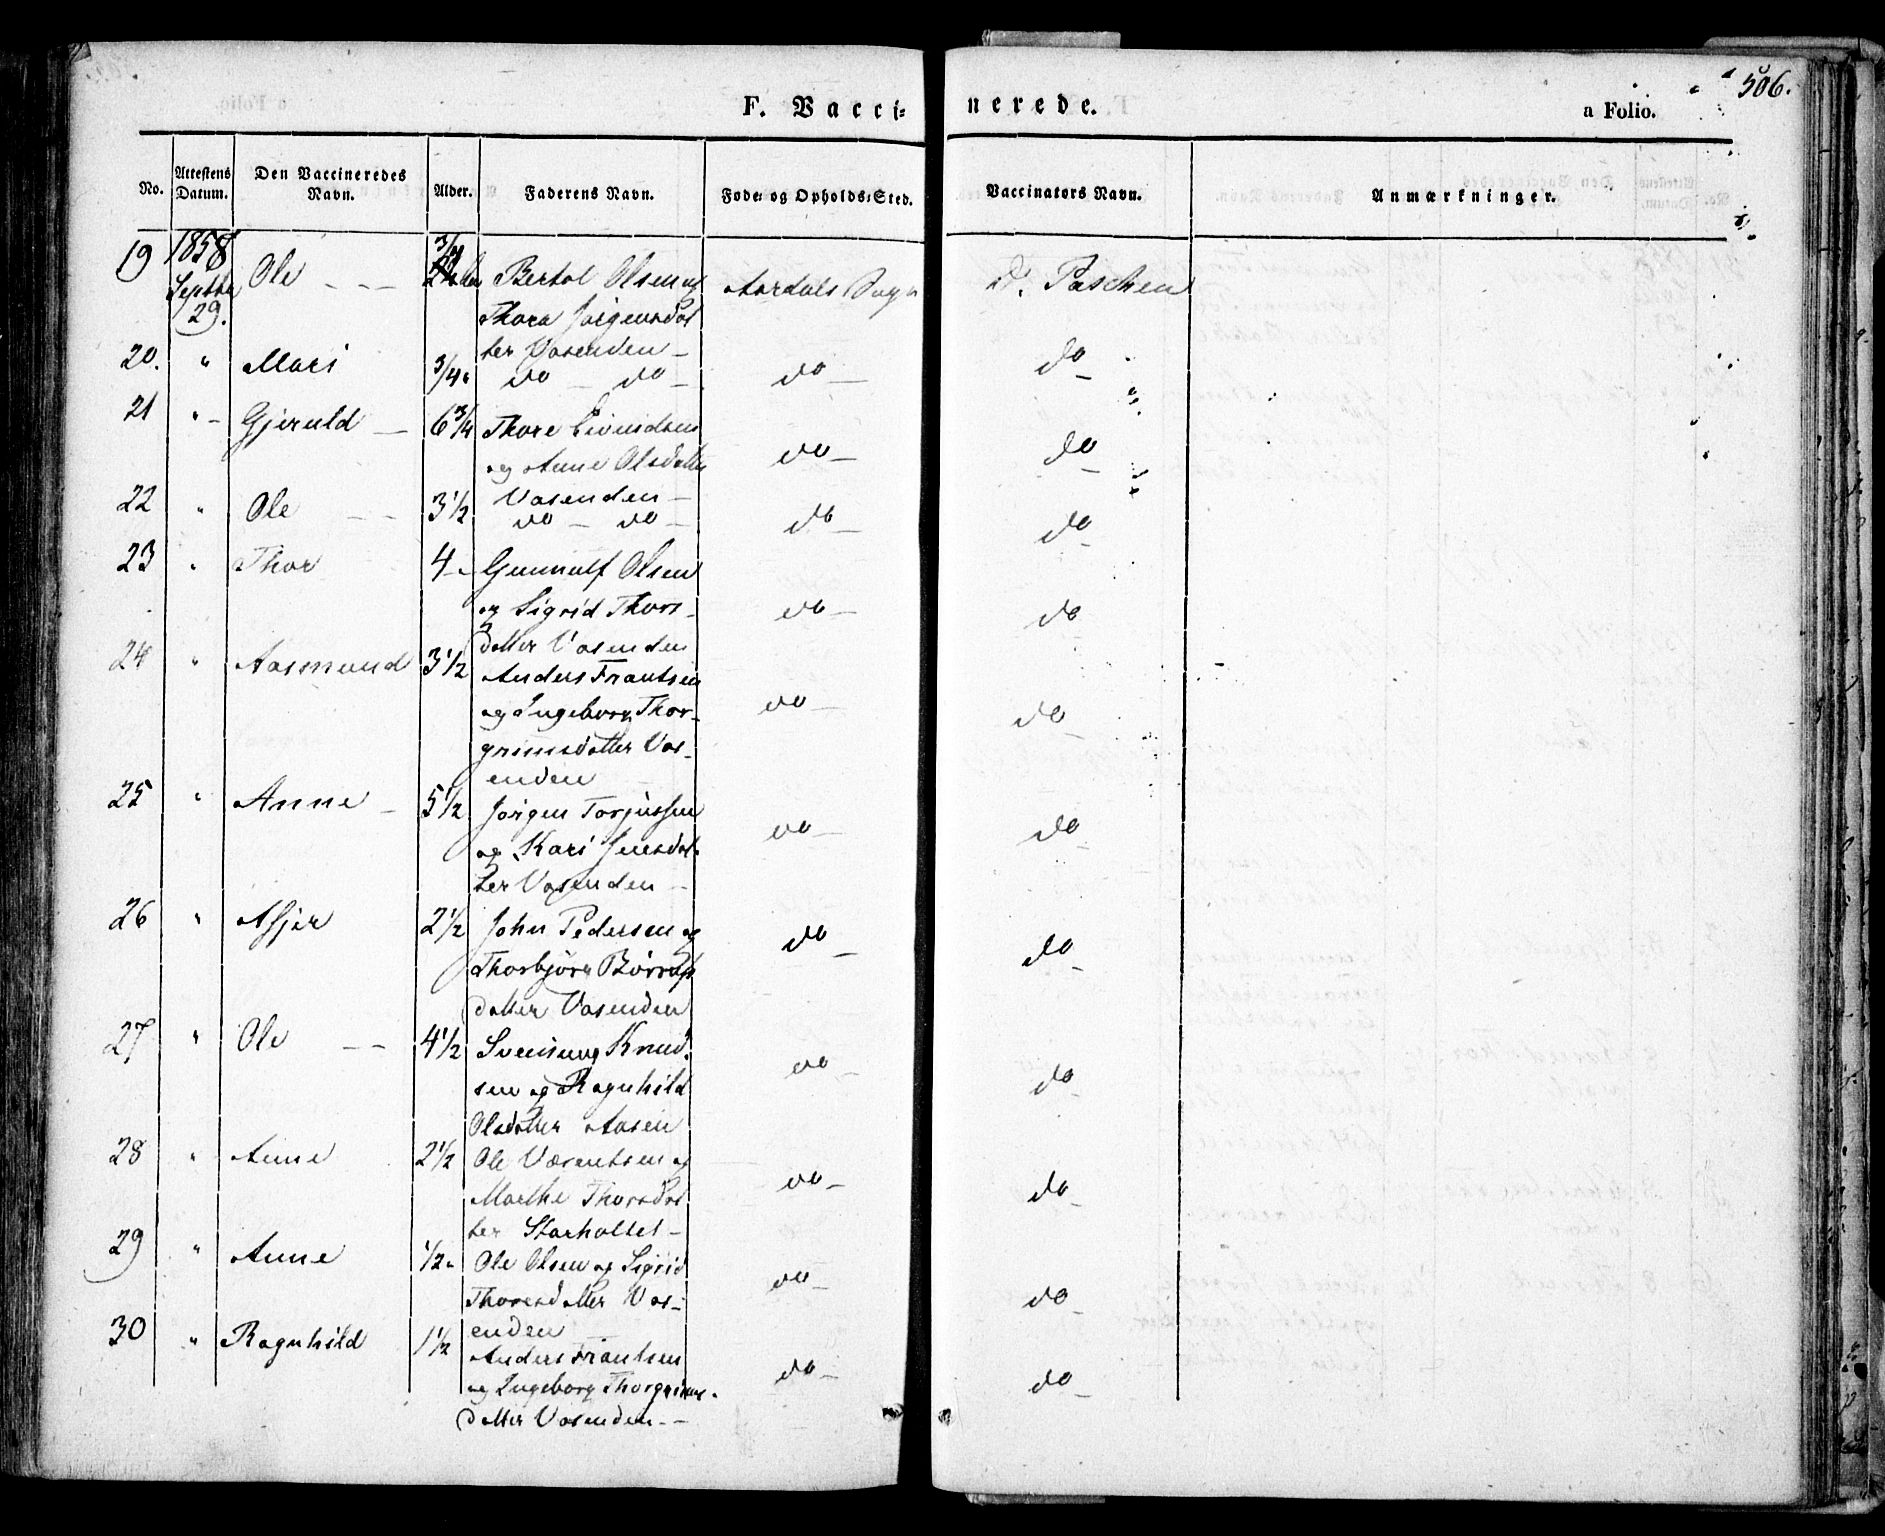 506.
F. Vacci-nerede. a Folio.
No. Attestens Datum. Den Vaccineredes Navn. Alder. Faderens Navn. Føde- og Opholds-Sted. Vaccinators Navn. Anmærkninger.
19 1858 Septbr 29. Ole — — — 3/4 Bertol Olsen og Aardals Sogn Dr. Paschen
Thora Jørgensdat
ter Vasenden —
20. " Mari 3/4 do — do — do — do —
21 " — Gjeruld — 6 3/4 Thore Eivindsen
og Anne Olsdatter do — do —
Vasenden —
22 " Ole — — 3 1/2 do — do — do — do —
23 " Thor 4 — Gunnulf Olsen
og Sigrid Thors- do — do
datter Vasenden
24 " Aasmund 3 1/2 Anders Frantsen
og Ingeborg Thor- do — do
grimsdatter Vas-
enden
25 " Anne — 5 1/2 Jørgen Torjussen
og Kari Jensdat- do — do —
ter Vasenden —
26 " Asjer 2 1/2 John Pedersen og do — do —
Thorbjørn
datter Vasenden
27 " Ole — — 4 1/2 Svensung Knud-
sen og Ragnhild do — do —
Olsdatter Aasen
28 " Anne 2 1/2 Ole Væruntsen og
Marthe Thorsdat do — do —
ter Storholtet —
29 " Anne 1/2 " Ole Olsen og Sigrid
Thoresdatter Vas- do — do —
enden
30 " Ragnhild 1 1/2 Anders Frantsen
og Ingeborg Thorgrims- do — do —
datter Vasenden — —